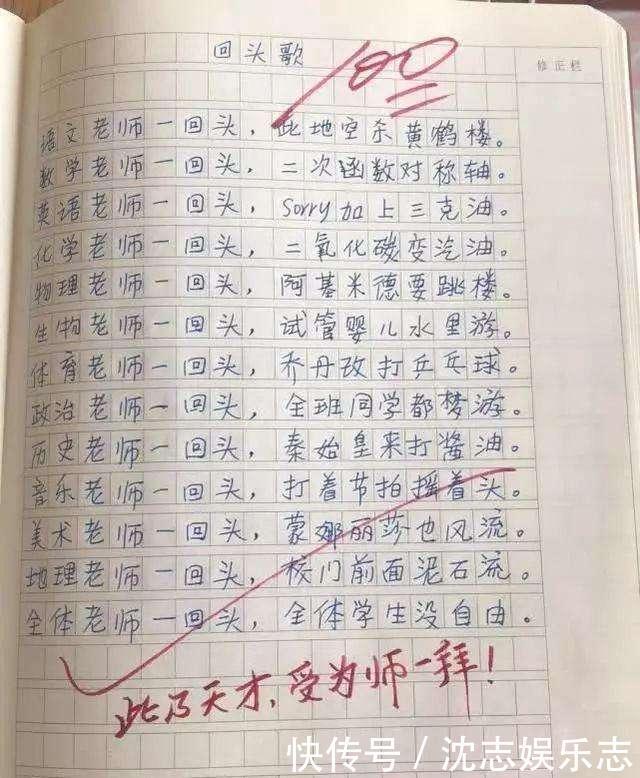 回头歌
100
修正栏
语文老师一回头，此地空杀黄鹤楼。
数学老师一回头，二次函数对称轴。
英语老师一回头，Sorry加上三克油。
化学老师一回头，二氧化碳变汽油。
物理老师一回头，阿基米德要跳楼。
生物老师一回头，试管婴儿水里游。
体育老师一回头，乔丹改打乒乓球。
政治老师一回头，全班同学都梦游。
历史老师一回头，秦始皇来打酱油。
音乐老师一回头，打着节拍摇着头。
美术老师一回头，蒙娜丽莎也风流。
地理老师一回头，校门前面泥石流。
全体老师一回头，全体学生没自由。
此乃天才，受为师一拜！
快传号／沈志娱乐志